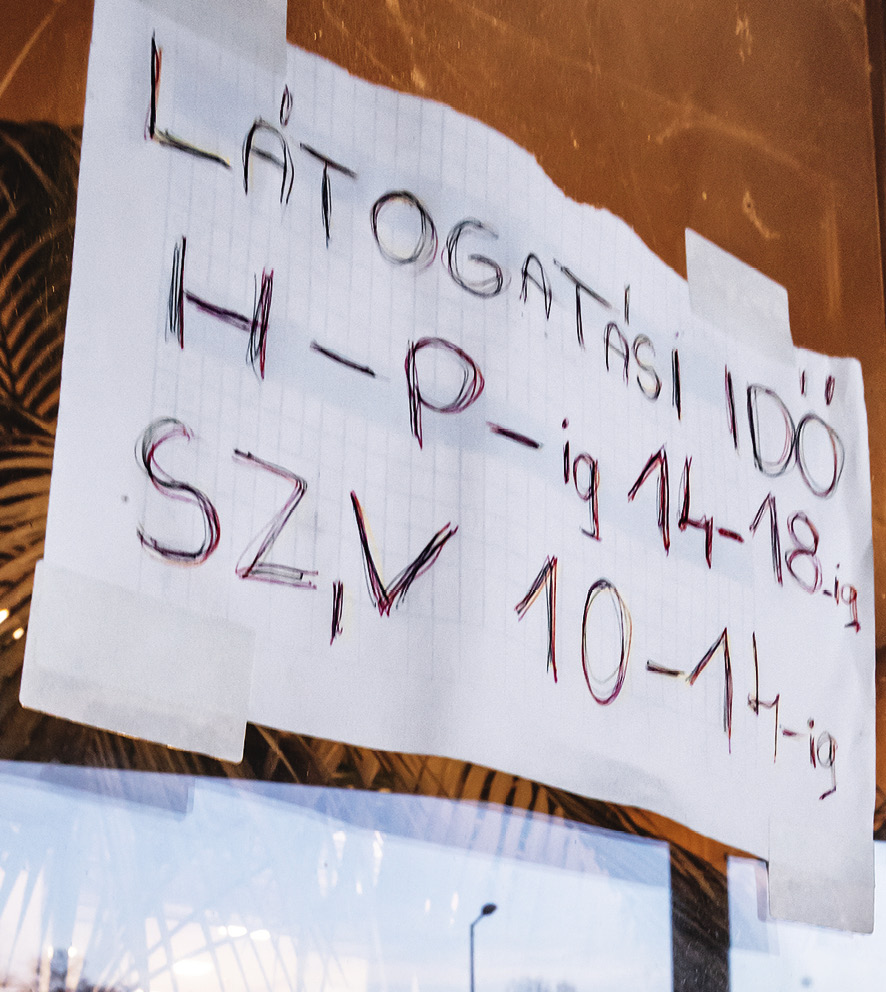 LÁTOGATÁSI IDŐ
H-P-ig 14-18-ig
SZ,V 10-14-ig